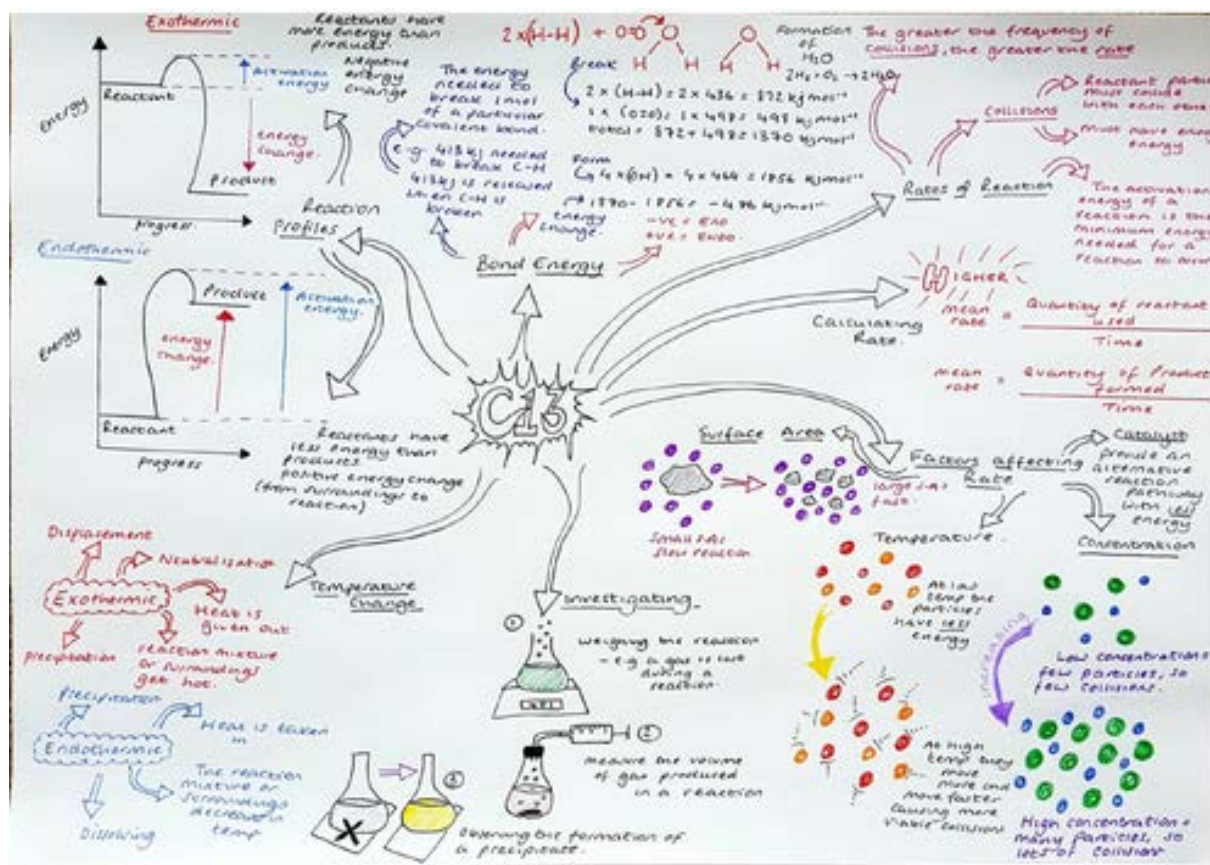 Exothermic
Energy
Reactant
Activation
energy
energy
change.
Product
progress.
Reactants have
more energy than
products.
Negative
energy
change
Reaction
Profiles
Endothermic
Energy
Product
Activation
energy.
energy
change.
Reactant
progress
Reactants have
less energy than
products
positive energy change
(from surroundings to
reaction)
The energy
needed to
break 1mol
of a particular
covalent bond.
e.g. 413kJ needed
to break C-H
413kJ is released
when C-H is
broken
Bond Energy
2x(H-H) + O=O
H H
H H
Formation
of
H2O
2H2 + O2 → 2H2O
Break
2 x (H-H) = 2 x 436 = 872 kJmol-1
1 x (O=O) = 1 x 498 = 498 kJmol-1
total = 872 + 498 = 1370 kJmol-1
Form
4 x (OH) = 4 x 464 = 1856 kJmol-1
energy
change.
-ve = EXO
+ve = ENDO.
The greater the frequency of
collisions, the greater the rate
Collisions
Reactant
must collide
with each other
Must have
energy
Rates of Reaction
The activation
energy of a
reaction is the
minimum energy
needed for a
reaction to
HIGHER
Calculating
Rate.
mean
rate = Quantity of reactant
used
Time
mean
rate = Quantity of Product
formed
Time
C13
Surface Area
small S.A=
slow reaction
large S.A=
Factors affecting
Rate
Catalyst
provide an
alternative
reaction
pathway
with less
energy
Temperature.
Concentration
At low
temp the
particles
have less
energy
At high
temp they
move
more and
move faster
causing more
viable collisions
increasing
Low concentration=
few particles, so
few collisions.
High concentration =
many particles, so
lots of collisions
Temperature
Change.
Displacement
Neutralisation
Exothermic
Heat is
given out
precipitation
reaction mixture
or surroundings
get hot.
Precipitation
Heat is taken
in
Endothermic
The reaction
mixture or
surroundings
decrease in
temp
Dissolving
Investigating
1
weighing the reaction
- e.g a gas is lost
during a
reaction.
2
measure the volume
of gas produced
in a reaction
3
X
Observing the formation of
a precipitate.